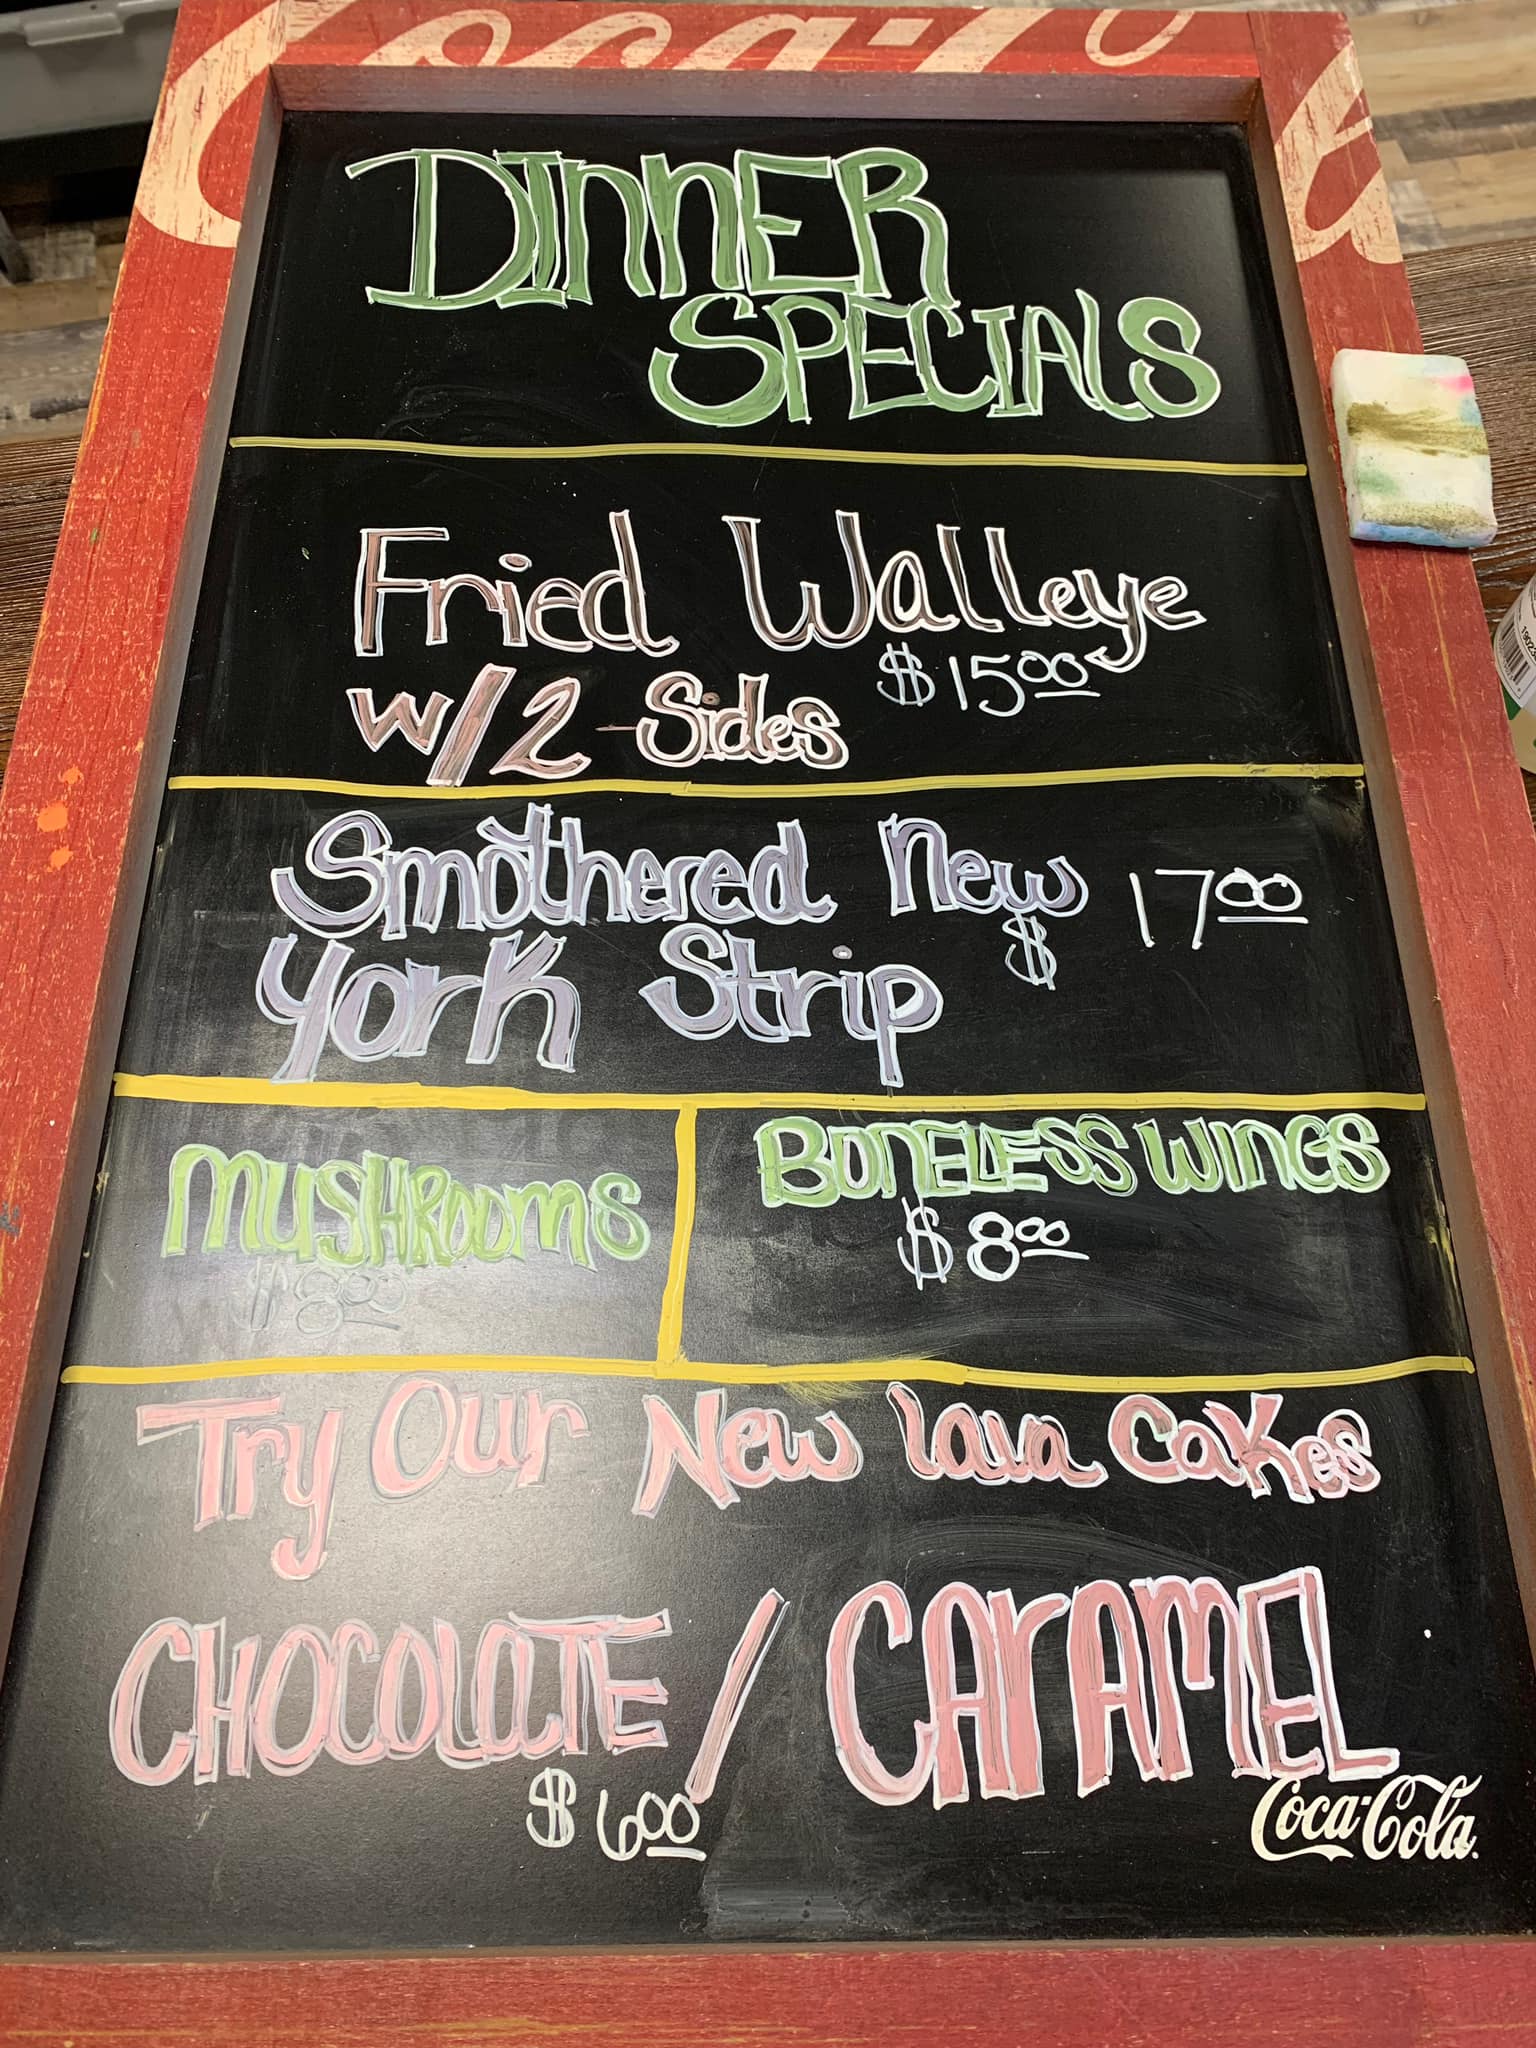 Coca-Co a
DINNER
SPECIALS
Fried Walleye
$15.00
w/2-Sides
Smothered New $17.00
York Strip
MUSHROOMS
$8.00
BONELESS WINGS
$8.00
Try Our New lava Cakes
CHOCOLATE / CARAMEL
$6.00
Coca-Cola